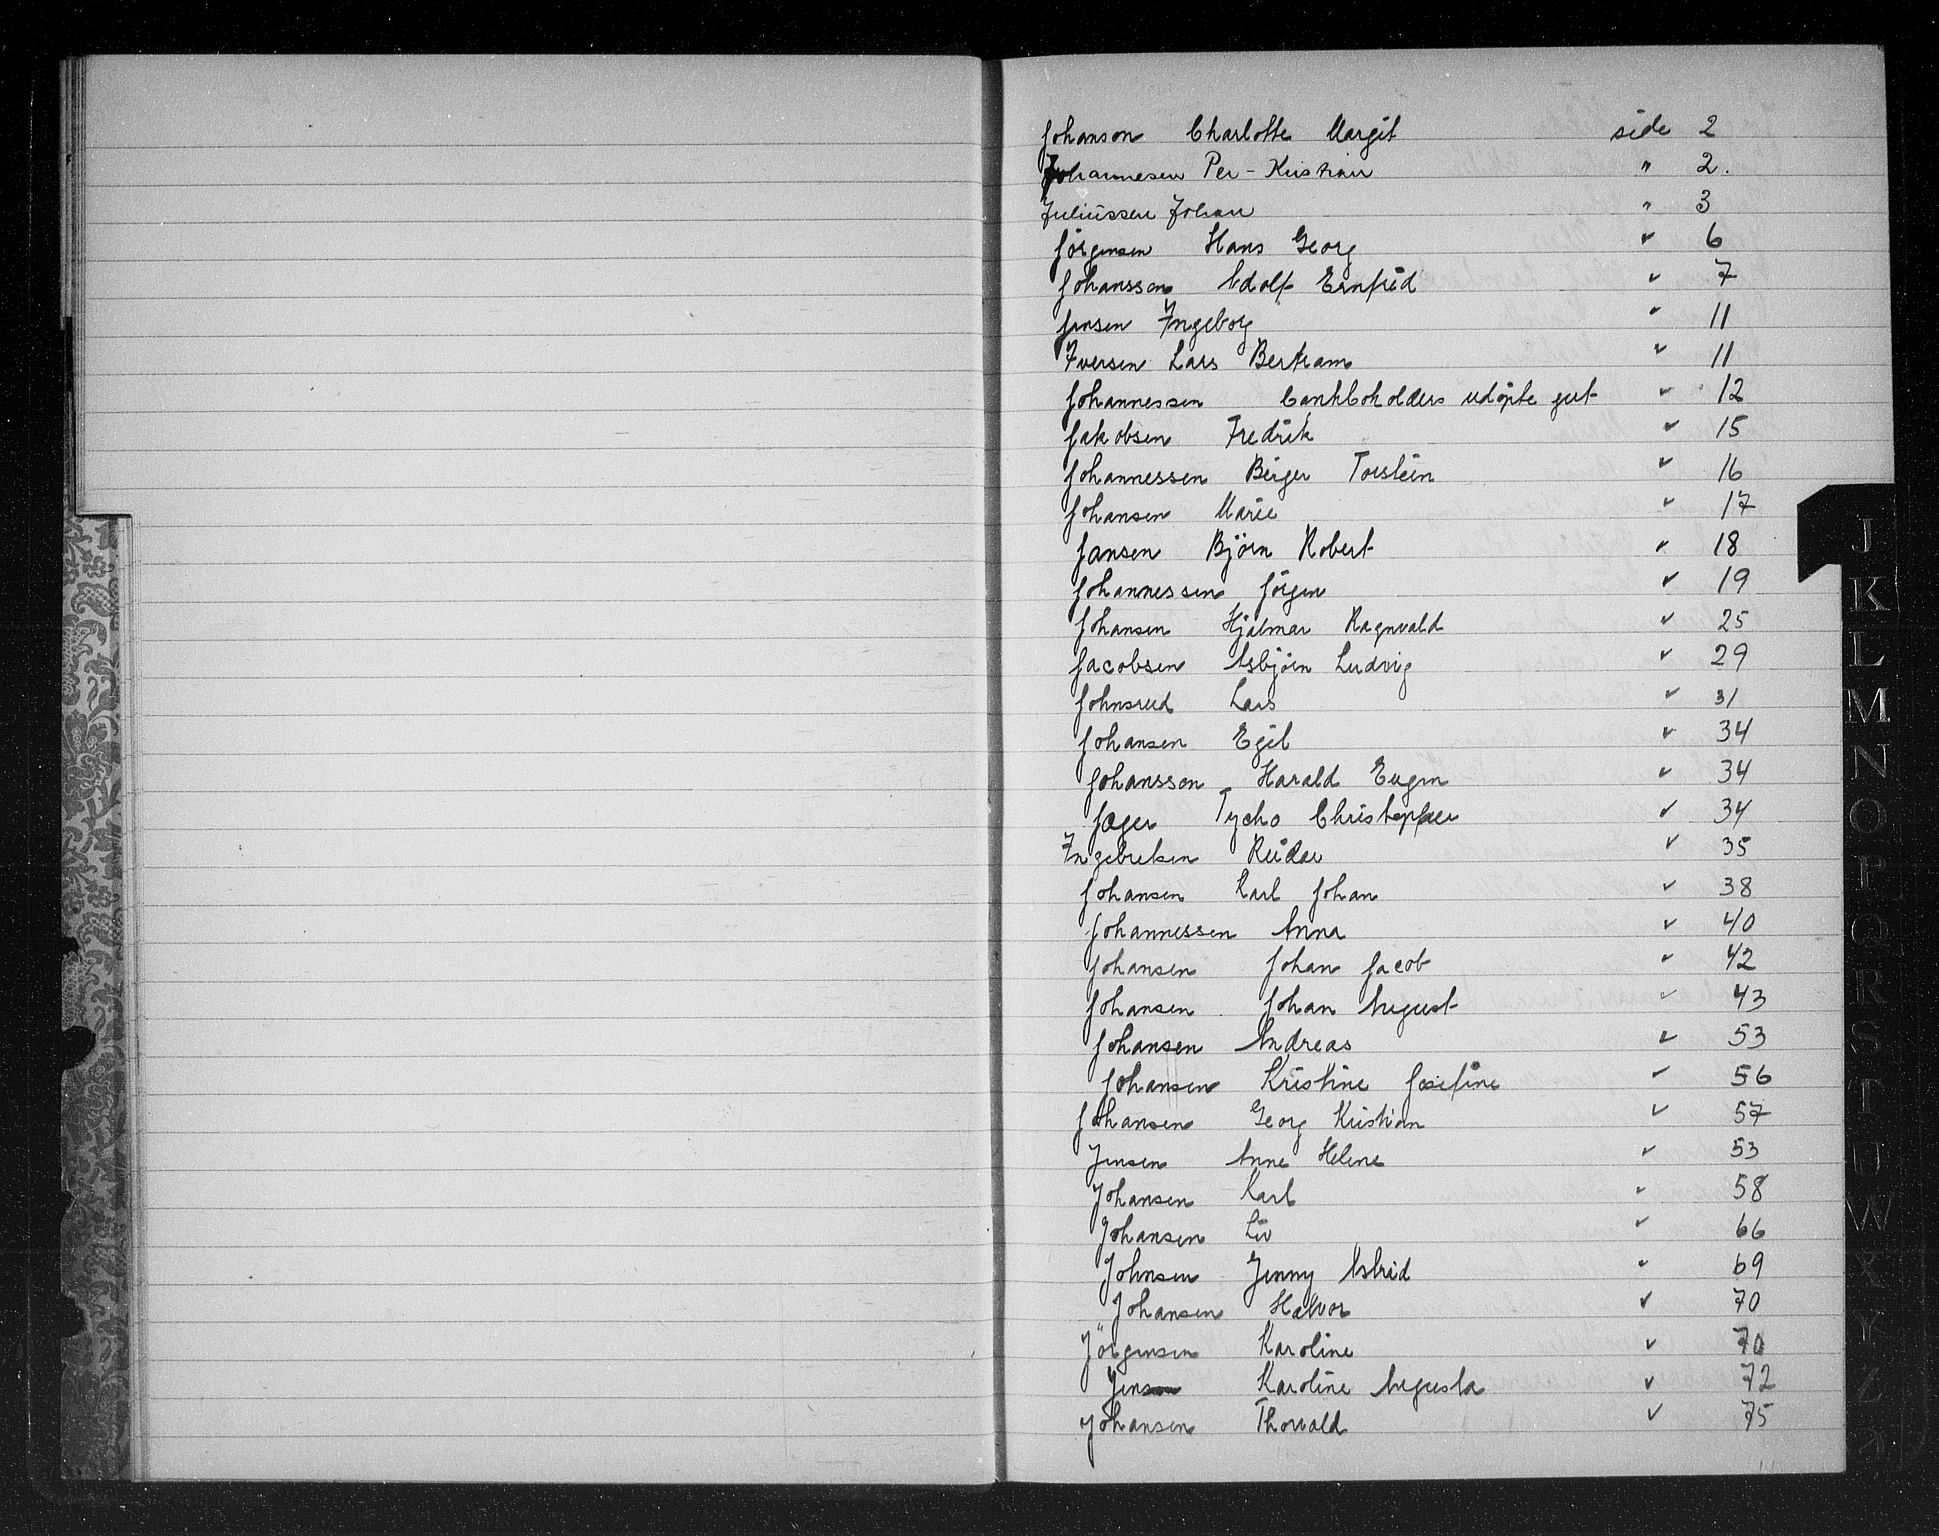 Johanson Charlotte Margit side 2
Johannesen Per-Kristian " 2.
Juliussen Johan " 3
Jörgensen Hans Georg " 6
Johansson Adolf Ernfrid " 7
Jensen Ingeborg " 11
Iversen Lars Bertram " 11
Johannessen udöpte gut " 12
Jakobsen Fredrik " 15
Johannessen Birger Torstein " 16
Johansen Marie " 17
Jansen Björn Robert " 18
Johannessen Jörgen " 19
Johansen Hjalmar Ragnvald " 25
Jacobsen Asbjörn Ludvig " 29
Johnsrud Lars " 31
Johansen Egil " 34
Johansson Harald Eugen " 34
Jæger Tycho Christopher " 34
Ingebretsen Reidar " 35
Johansen Karl Johan " 38
Johannessen Anna " 40
Johansen Johan Jacob " 42
Johansen Johan August " 43
Johansen Andreas " 53
Johansen Kristine Josefine " 56
Johansen Georg Kristian " 57
Jensen Anne Helene " 53
Johansen Karl " 58
Johansen Liv " 66
Johnsen Jenny Astrid " 69
Johansen Halvor " 70
Jörgensen Karoline " 70
Jenson Karoline Augusta " 72
Johansen Thorvald " 75
J
K
L
M
N
O
P
Q
R
S
T
U
W
X
Y
Z